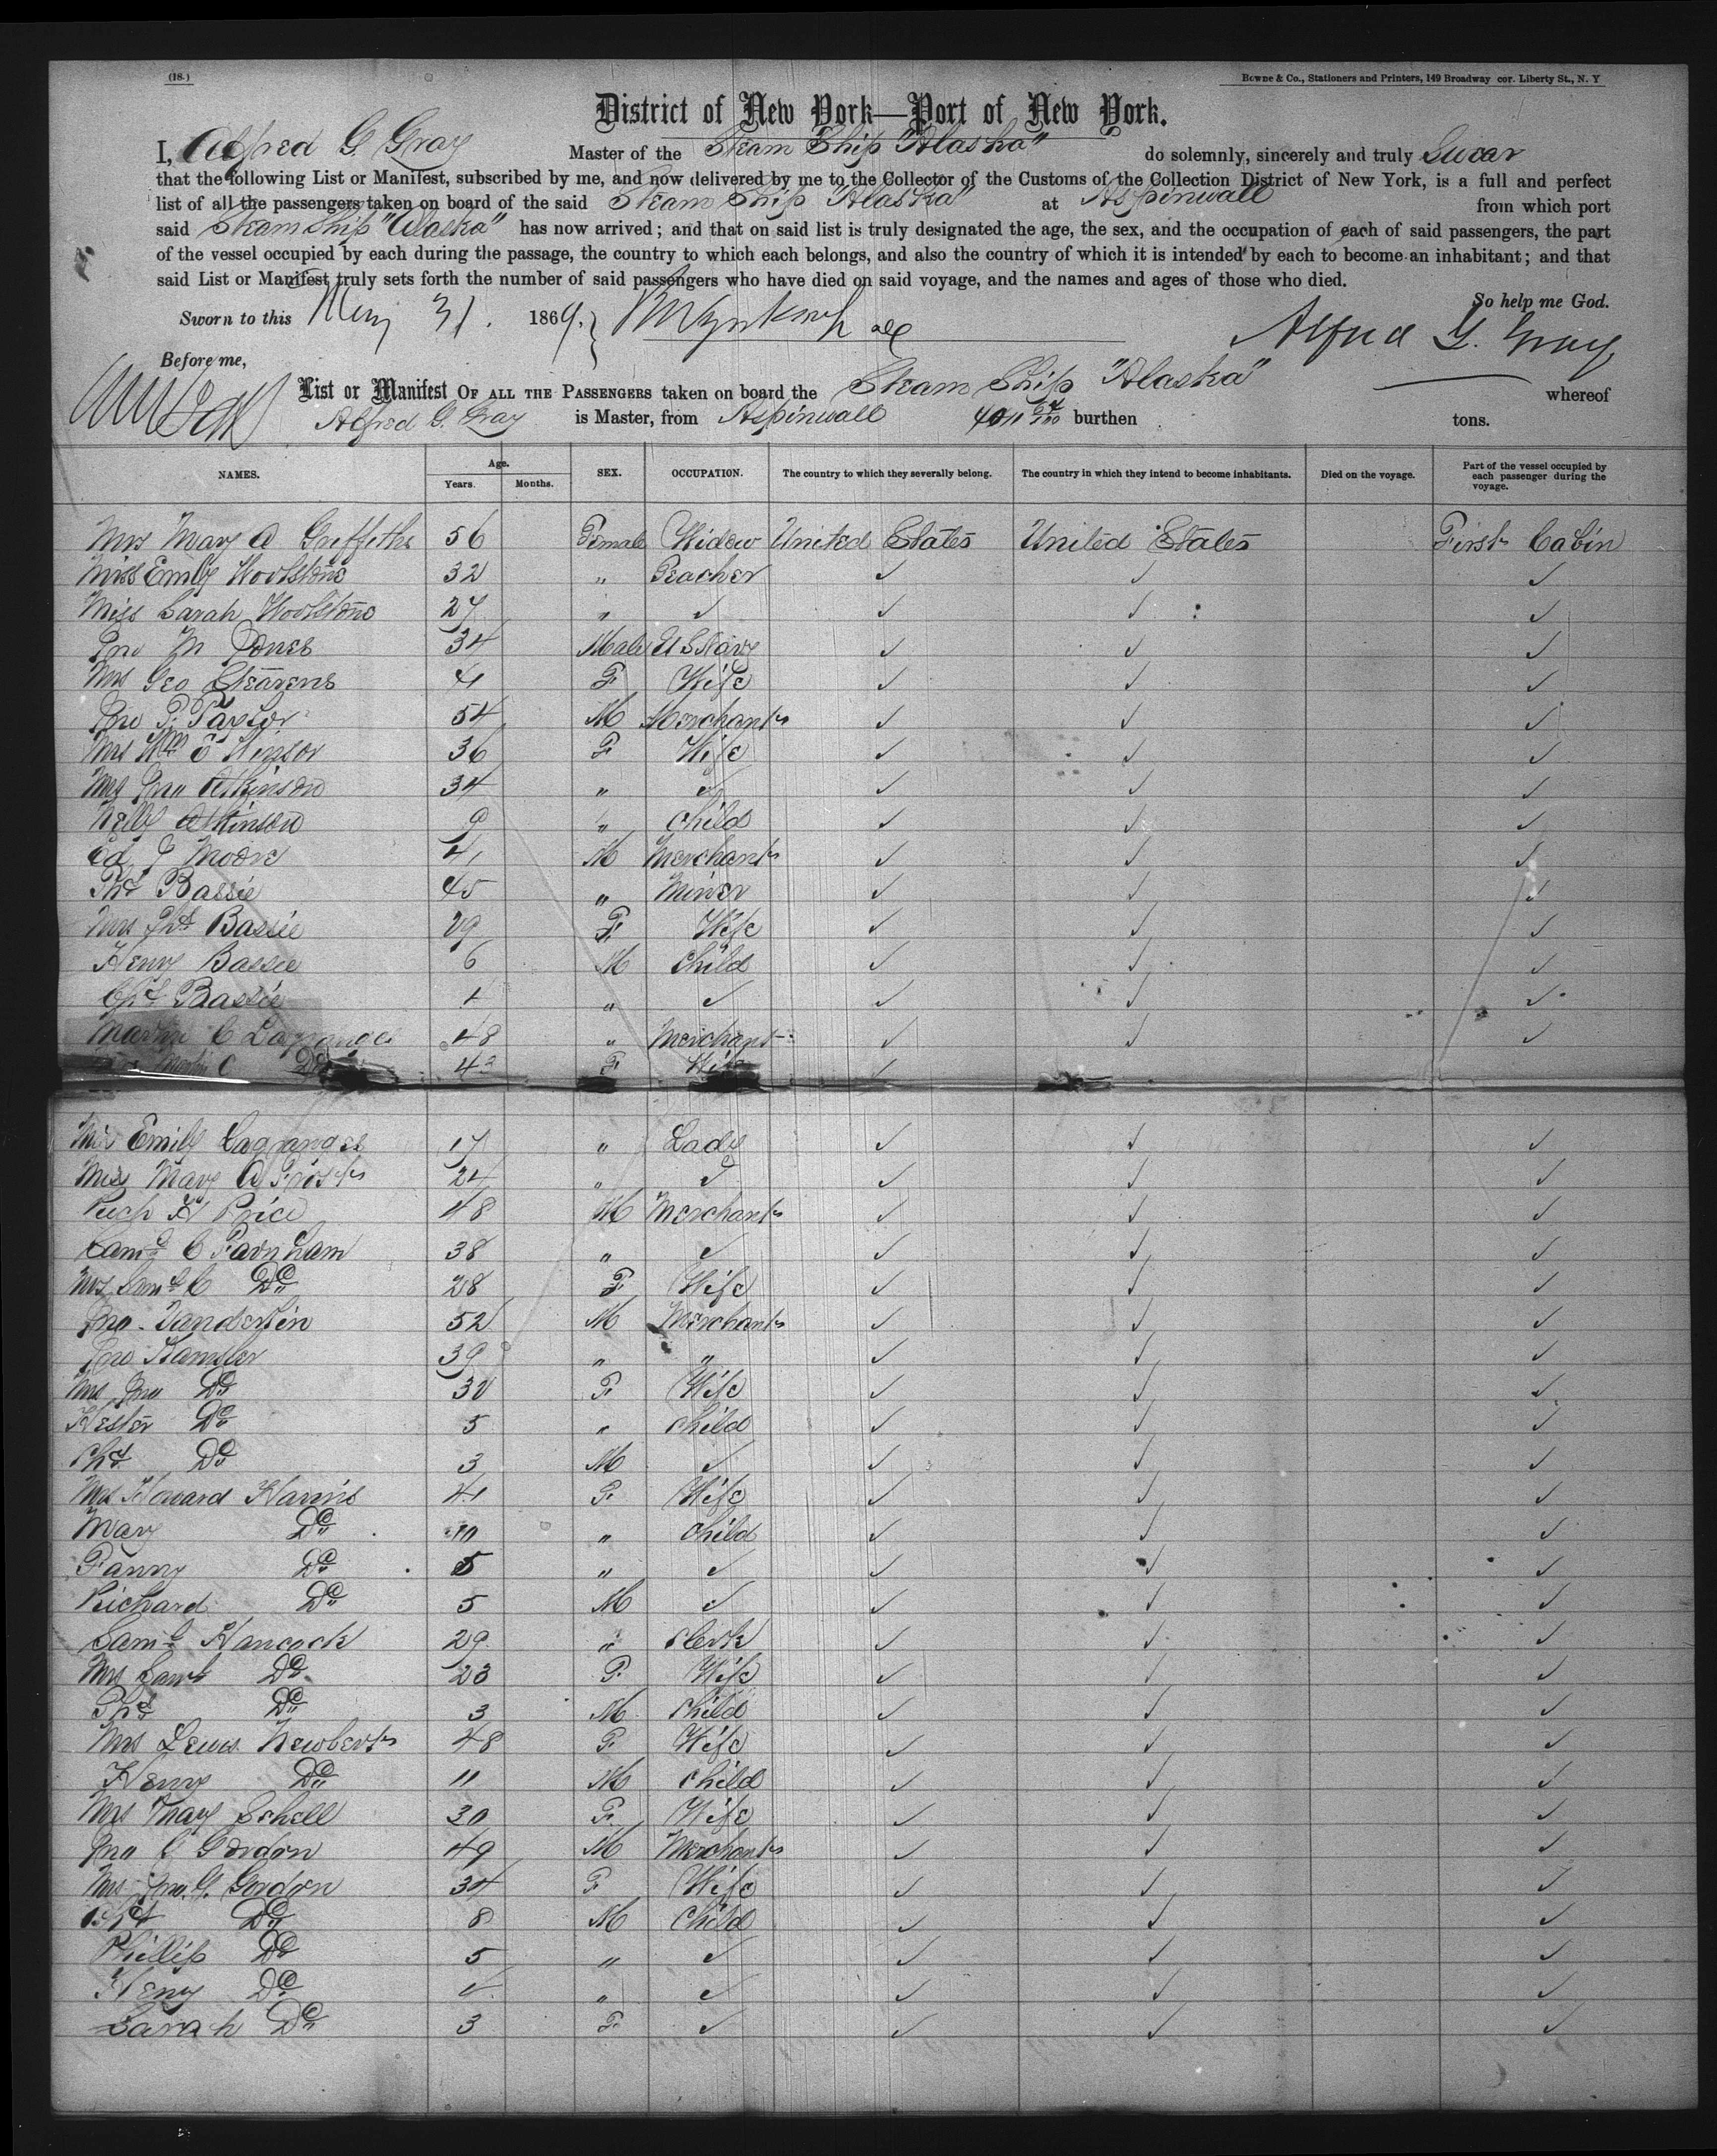 (18.)
Bowne & Co., Stationers and Printers, 149 Broadway cor. Liberty St., N. Y
District of New York—Port of New York.
I, Alfred G. Gray Master of the Steam Ship "Alaska" do solemnly, sincerely and truly Swear
that the following List or Manifest, subscribed by me, and now delivered by me to the Collector of the Customs of the Collection District of New York, is a full and perfect
list of all the passengers taken on board of the said Steam Ship "Alaska" at Aspinwall from which port
said Steam Ship "Alaska" has now arrived; and that on said list is truly designated the age, the sex, and the occupation of each of said passengers, the part
of the vessel occupied by each during the passage, the country to which each belongs, and also the country of which it is intended by each to become an inhabitant; and that
said List or Manifest truly sets forth the number of said passengers who have died on said voyage, and the names and ages of those who died.
So help me God.
Sworn to this May 31. 1869. Alfred G. Gray
Before me,
List or Manifest OF ALL THE PASSENGERS taken on board the Steam Ship "Alaska" whereof
Alfred G. Gray is Master, from Aspinwall 4011 64/100 burthen tons.
NAMES. Age. Years. Months. SEX. OCCUPATION. The country to which they severally belong. The country in which they intend to become inhabitants. Died on the voyage. Part of the vessel occupied by each passenger during the voyage.
Mrs Mary A Griffiths 56 Female Widow United States United States First Cabin
Miss Emily Woolstone 32 " Teacher ✓ ✓ ✓
Miss Sarah Woolstone 27 " ✓ ✓ ✓ ✓
Jno M Jones 34 Male U S Navy ✓ ✓ ✓
Mrs Geo Stearens 41 F Wife ✓ ✓ ✓
Jno P. Taylor 54 M Merchant ✓ ✓ ✓
Mrs Wm E Winsor 36 F Wife ✓ ✓ ✓
Mrs Jno Atkinson 34 " ✓ ✓ ✓ ✓
Nelly Atkinson 9 " Child ✓ ✓ ✓
Ed. J Moore 41 M Merchant ✓ ✓ ✓
Bassie 45 " Miner ✓ ✓ ✓
Mrs Bassie 29 F Wife ✓ ✓ ✓
Henry Bassie 6 M Child ✓ ✓ ✓
Bassie 4 " ✓ ✓ ✓ ✓
Martin C Lagranges 48 " Merchant ✓ ✓ ✓
Martin C Do 43 F Wife ✓
Miss Emily Lagranges 17 " Lady ✓ ✓ ✓
Miss Mary A Frost 24 " ✓ ✓ ✓ ✓
Rich H Price 48 M Merchant ✓ ✓ ✓
Saml C Farnham 38 " ✓ ✓ ✓ ✓
Mrs Saml C Do 28 F Wife ✓ ✓ ✓
Jno. Vanderlin 52 M Merchant ✓ ✓ ✓
Jno Hamsler 39 " " ✓ ✓ ✓
Mrs Jno Do 30 F Wife ✓ ✓ ✓
Hester Do 5 " Child ✓ ✓ ✓
Do 3 M ✓ ✓ ✓ ✓
Mrs Howard Harris 41 F Wife ✓ ✓ ✓
Mary Do 10 " Child ✓ ✓ ✓
Fanny Do 5 " ✓ ✓ ✓ ✓
Richard Do 5 M ✓ ✓ ✓ ✓
Saml Hancock 29 " Clerk ✓ ✓ ✓
Mrs Saml Do 23 F Wife ✓ ✓ ✓
Do 3 M Child ✓ ✓ ✓
Mrs Lewis Newbert 48 F Wife ✓ ✓ ✓
Henry Do 11 M Child ✓ ✓ ✓
Mrs Mary Schell 30 F Wife ✓ ✓ ✓
Jno C Gordon 49 M Merchant ✓ ✓ ✓
Mrs Jno. G. Gordon 34 F Wife ✓ ✓ ✓
Do 8 M Child ✓ ✓ ✓
Phillip Do 5 " ✓ ✓ ✓ ✓
Henry Do 4 " ✓ ✓ ✓ ✓
Sarah Do 3 F ✓ ✓ ✓ ✓